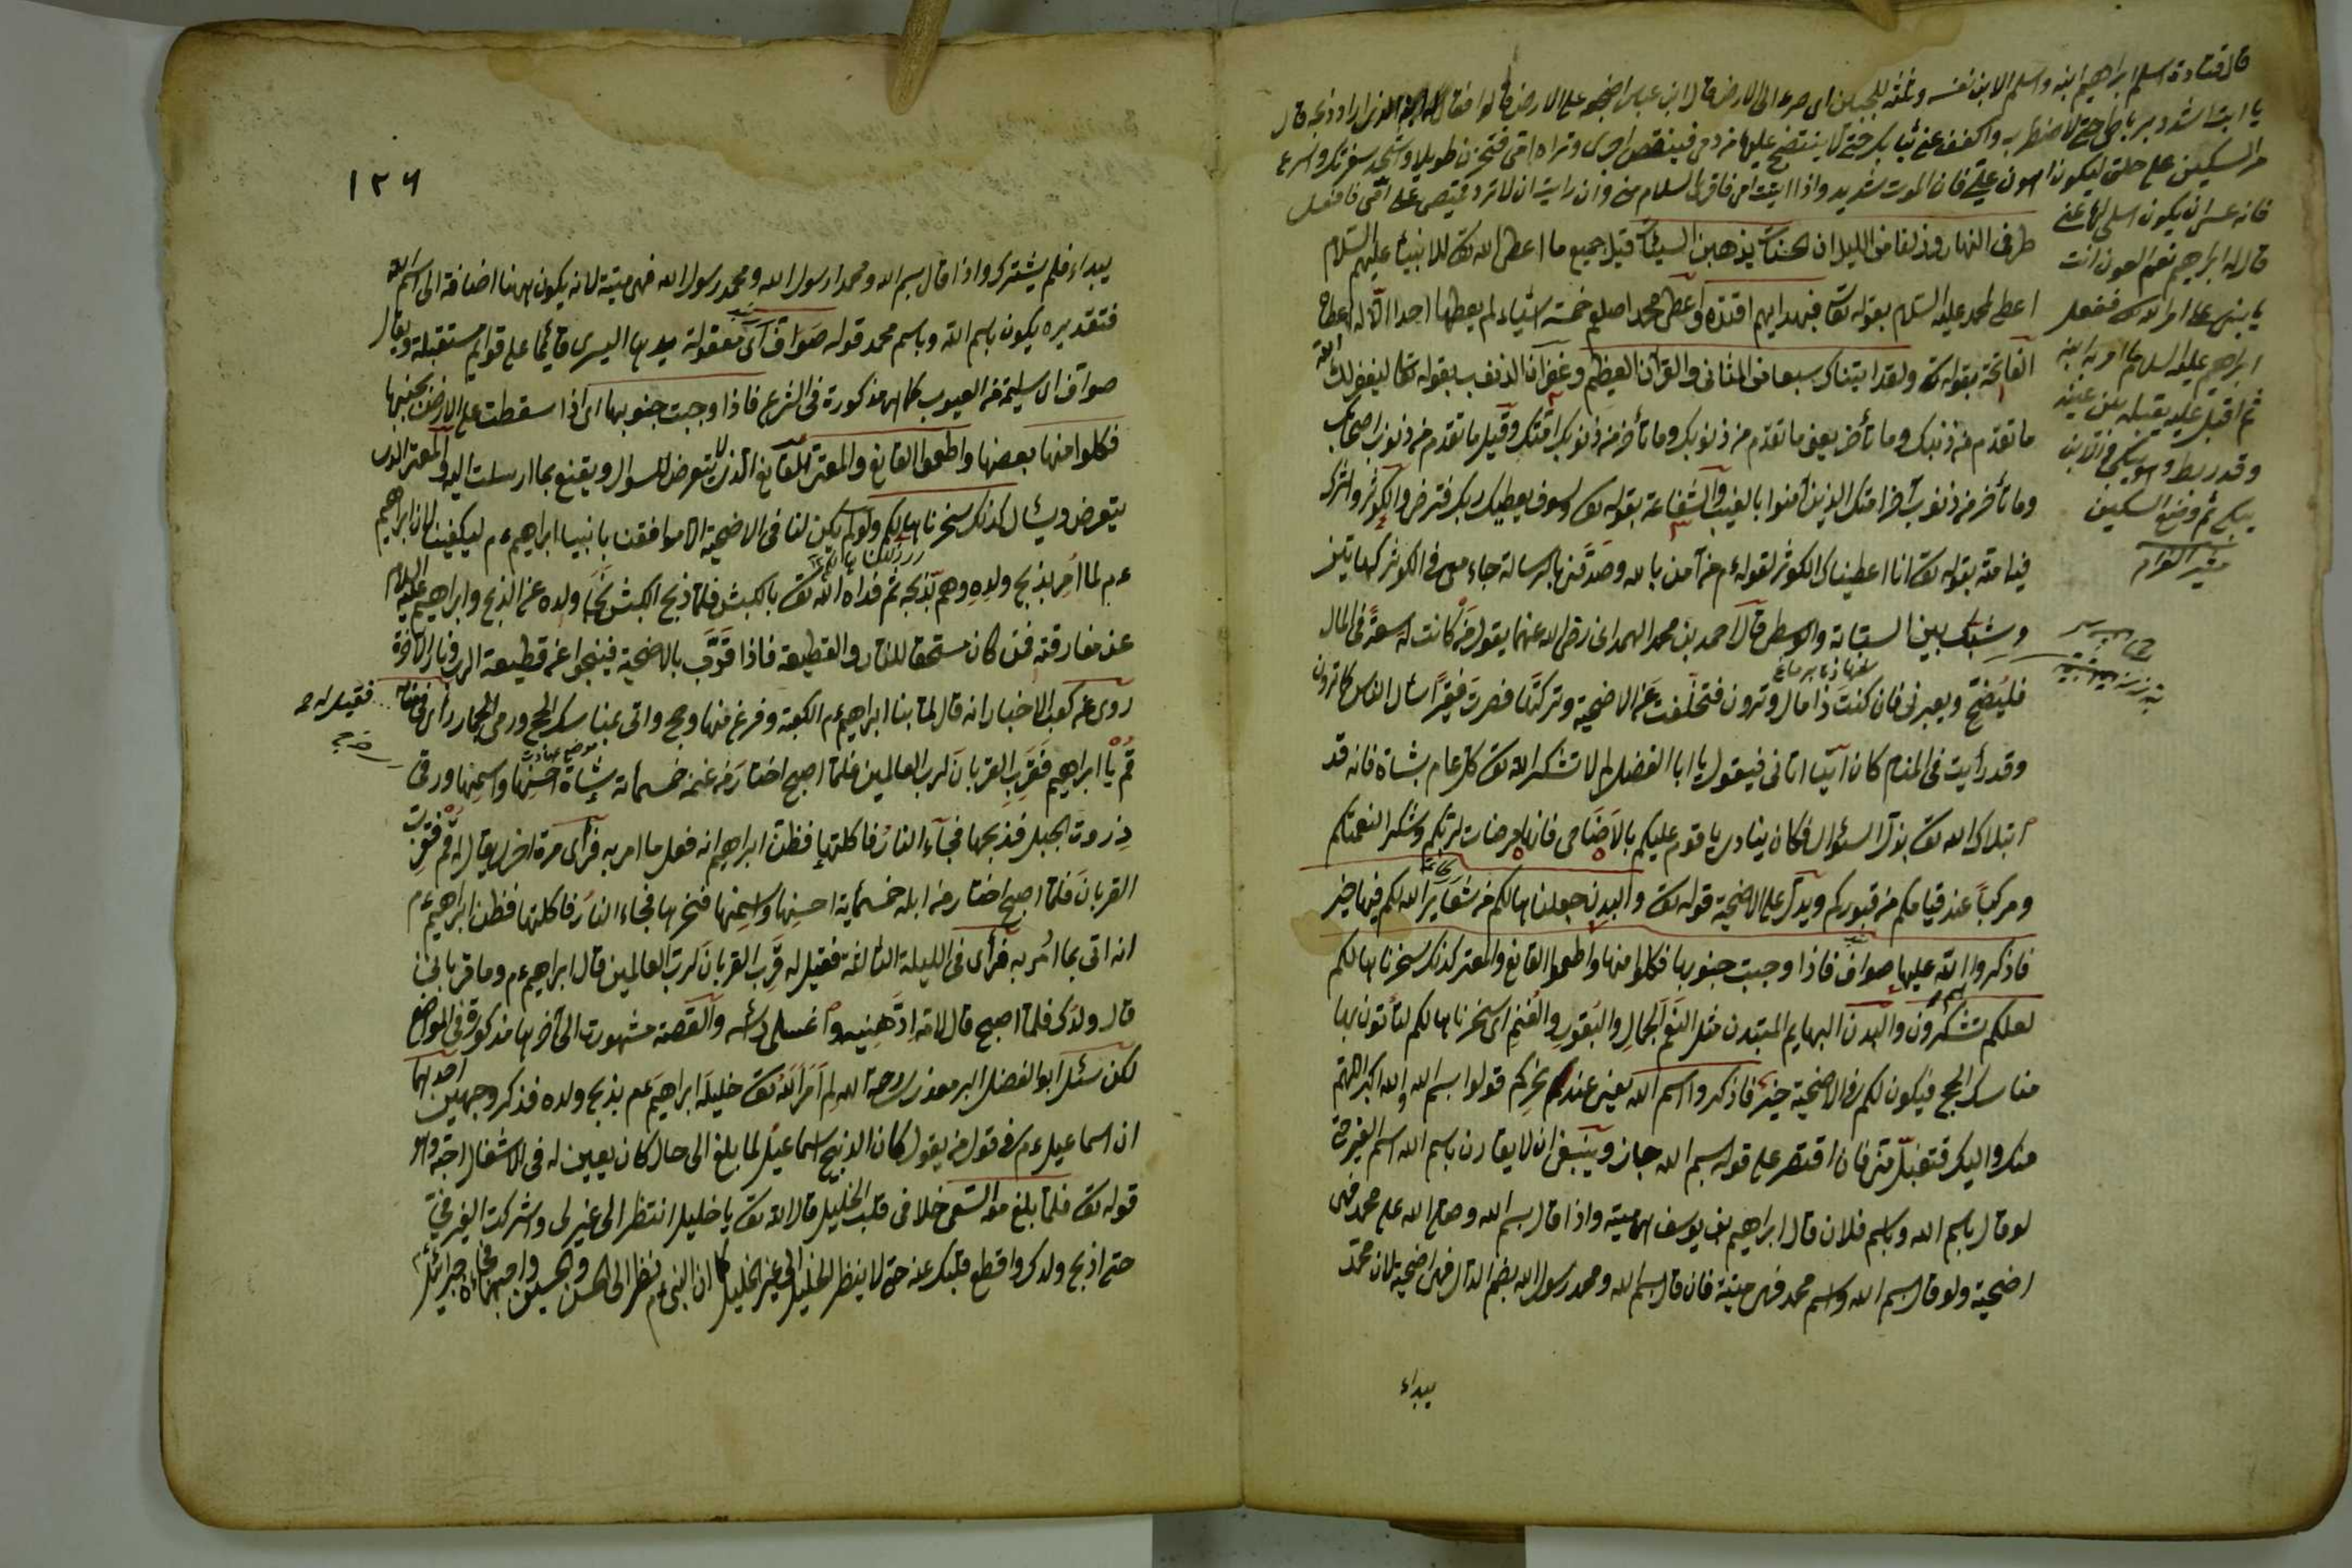 قال قتادة اسلم ابراهيم ابنه واسلم الابن نفسه وتله للجبين اى صرعه الى الارض قال ابن عباس اضجعه على الارض قالوا فقال الذى اراد ذبحه قال
يا ابت اشدد رباطى حتى لا اضطرب واكفف عنى ثيابك حتى لا ينتضح عليها من دمى فينقص اجرى وتراه امى فتحزن طويلا واشحذ شفرتك واسرع
مر السكين على حلقى ليكون اهون على فان الموت شديد واذا اتيت امى فاقرأ السلام منى وان رايت ان لا ترد قميصى على امى فافعل
فانه عسى ان يكون اسلى لها عنى
قال له ابراهيم نعم العون انت
يا بنى على امر الله ففعل
ابراهيم عليه السلام ما امر به ابنه
ثم اقبل عليه يقبله بين عينيه
وقد ربط وهو يبكى والابن
يبكى ثم وضع السكين
طرفى النهار وزلفا من الليل ان الحسنات يذهبن السيئات قيل جميع ما اعطى الله تعالى للانبياء عليهم السلام
اعطى لمحمد عليه السلام بقوله تعالى فبهداهم اقتده واعطى محمد صلعم خمسة اشياء لم يعطها احدا الا له اعطاه الله
الفاتحة بقوله تعالى ولقد آتيناك سبعا من المثانى والقرآن العظيم وغفران الذنوب بقوله تعالى ليغفر لك
ما تقدم من ذنبك وما تأخر يعنى ما تقدم من ذنوبك وما تأخر من ذنوب امتك وقيل ما تقدم من ذنوب اصحابك
وما تأخر من ذنوب آخر امتك الذين آمنوا بالغيب والشفاعة بقوله تعالى ولسوف يعطيك ربك فترضى والكوثر
بقوله تعالى انا اعطيناك الكوثر لقوله ءم من آمن بالله وصدقنى بالرسالة جاء معى فى الكوثر كهاتين
وشبك بين السبابة والوسطى قال احمد بن محمد الهمدانى رضى الله عنهما يقول من كانت له سعة فى المال
فليضح ويعبرنى فان كنت ذا مال وثروة فتخلفت عن الاضحية وتركتها فصرت فقيرا اسأل الناس كما ترون
وقد رأيت فى المنام كان آتيا اتانى فيقول يا ابا الفضل لم لا تشكر الله تعالى كل عام بشاة فانه قد
ابتلاك الله تعالى بذل السئوال فكان ينادى يا قوم عليكم بالاضاحى فانها مرضات لربكم وشكر النعمتكم
ومركبا عند قيامكم من قبوركم ويدل على الاضحية قوله تعالى والبدن جعلناها لكم من شعاير الله لكم فيها خير
فاذكروا اسم الله عليها صواف فاذا وجبت جنوبها فكلوا منها واطعموا القانع والمعتر كذلك سخرناها لكم
لعلكم تشكرون والبدن البهايم المبتدن مثل النعم الجمال والبقور والغنم اى سخرناها لكم لتأتون بها
مناسك الحج فيكون لكم فى الاضحية خير فاذكروا اسم الله يعنى عند نحركم قولوا بسم الله والله اكبر اللهم
منك واليك فتقبل منى فان اقتصر على قوله بسم الله جاز وينبغى ان لا يقارن باسم الله اسم الغير حتى
لو قال باسم الله وباسم فلان قال ابراهيم بن يوسف هى ميتة واذا قال بسم الله وصلى الله على محمد فهى
اضحية ولو قال بسم الله واسم محمد فهى ميتة فان قال بسم الله ومحمد رسول الله بضم الدال فهى اضحية لان محمد
يبداء
١٢٦
يبداء فلم يشترك واذا قال بسم الله ومحمدا رسول الله ومحمد رسول الله فهى ميتة لانه يكون ههنا اضافة الى اسم الله
فتقديره يكون باسم الله وباسم محمد قوله صواف اى معقولة يدها اليسرى قائما على قوائم مستقبلة ويقال
صواف اى سليمة من العيوب كما هى مذكورة فى الشرع فاذا وجبت جنوبها اى اذا سقطت على الارض بجنبها
فكلوا منها بعضها واطعموا القانع والمعتر القانع الذى لا يتعرض للسوال ويقنع بما ارسلت اليه والمعتر الذى
يتعرض ويسأل كذلك سخرناها لكم ولو لم يكن لنا فى الاضحية الا موافقتنا بانبيا ابراهيم ءم ليكفينا لان ابراهيم
ءم لما امر بذبح ولده وهم بذبحه ثم فداه الله تعالى بالكبش فلما ذبح الكبش نجا ولده من الذبح وابراهيم عليه السلام
عن مفارقته فمن كان مستحقا للنار والقطيعة فاذا تقرب بالاضحية فينجوا عن قطيعة الرب ونار الآخرة
روى عن كعب الاخبار انه قال لما بنا ابراهيم ءم الكعبة وفرغ منها وحج واتى بمناسك الحج ورمى الجمار رأى فى منامه فقيل له
قم يا ابراهيم فقرب القربان لرب العالمين فلما اصبح اختار من غنمه خمسمائة شاة احسنها واسمنها ورقى
ذروت الجبل فذبحها فجآء النار فاكلتها فظن ابراهيم انه فعل ما امر به فرأى مرة اخرى يقال له قم فقرب
القربان فلما اصبح اختار من ابله خمسماية احسنها واسمنها فنحرها فجاء النار فاكلتها فظن ابراهيم ءم
انه اتى بما امر به فرأى فى الليلة الثالثة فقيل له قرب القربان لرب العالمين قال ابراهيم ءم وما قربانى
قال ولدك فلما اصبح قال لامه ادهنيه واغسلى رأسه والقصة مشهورة الى آخرها مذكورة فى المواضع
لكن سئل ابو الفضل البرمعذرى رحمة الله لم امر الله تعالى خليله ابراهيم عم بذبح ولده فذكر وجهين احدهما
ان اسماعيل ءم فى قول من يقول كان الذبيح اسماعيل لما بلغ الى حال كان يعين له فى الاشغال احبه وهو
قوله تعالى فلما بلغ معه السعى خلا فى قلب الخليل قال الله تعالى يا خليل انتظر الى غيرى واشركت الغير فىّ
حتى اذبح ولدك واقطع قلبك عنه حتى لا ينظر الخليل الى غير الخليل كما ان النبى ءم نظر الى الحسن والحسين واحبهما فجاءه جبرائيل ءم